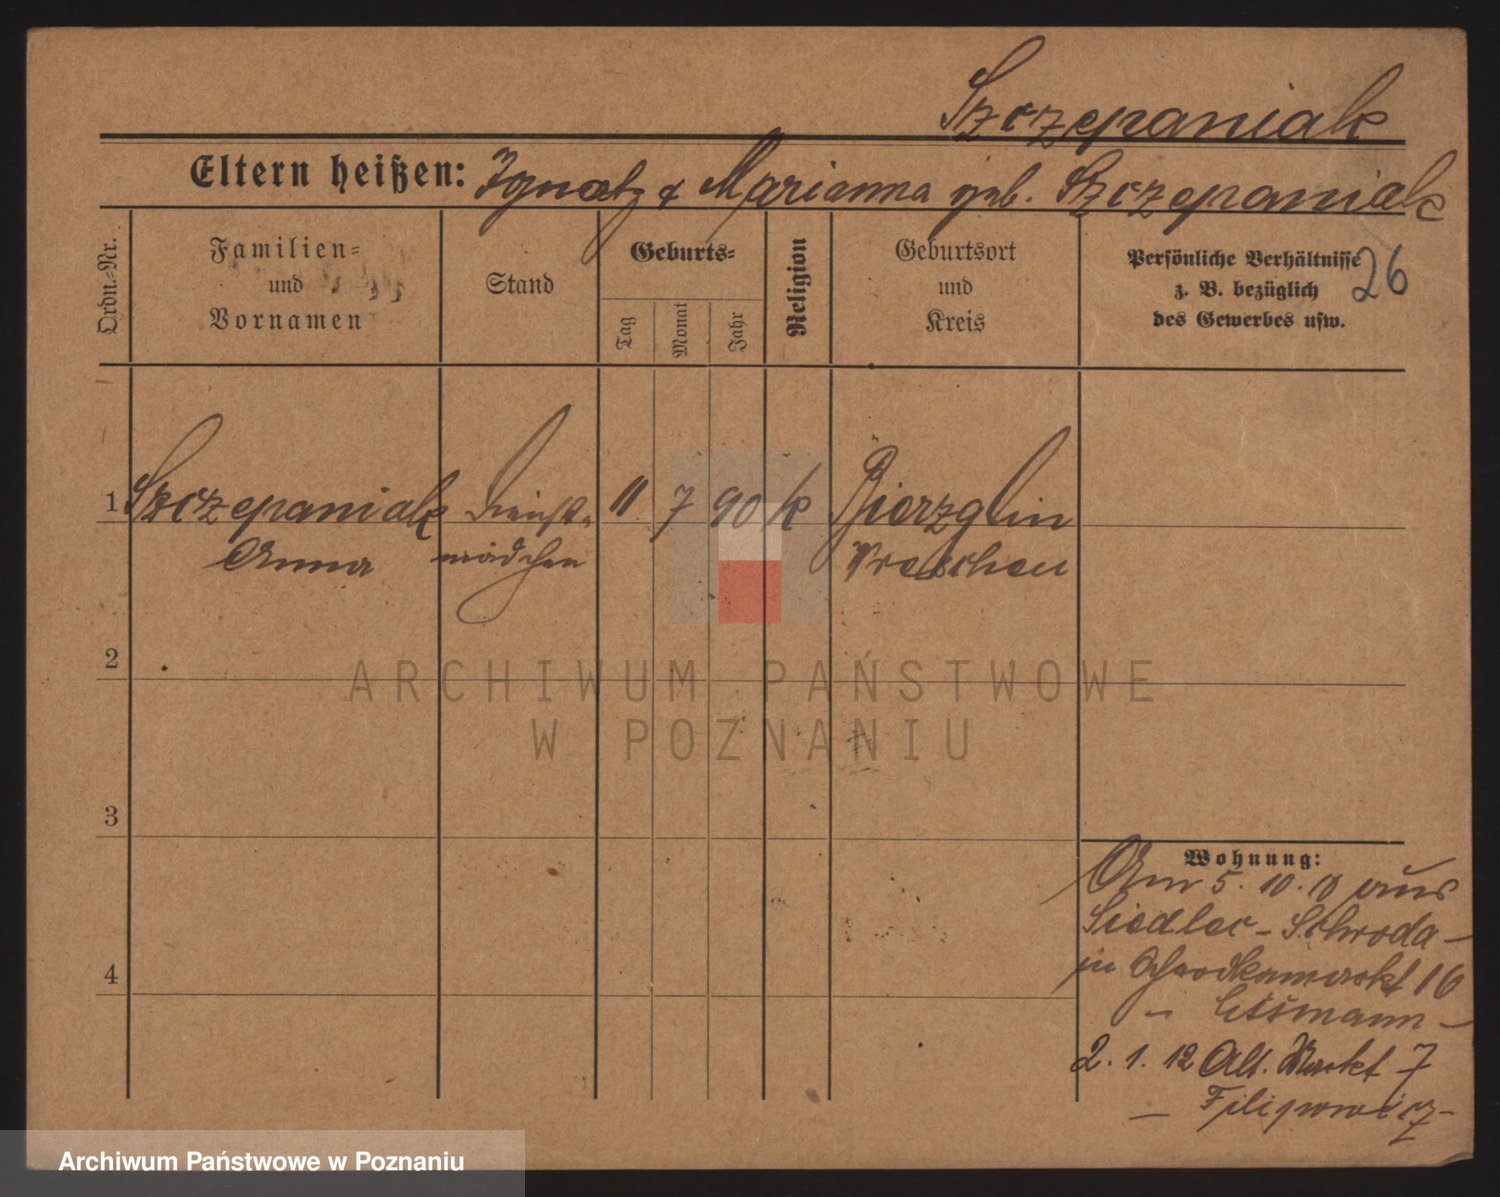 Szczepaniak
Eltern heißen: Ignatz & Marianna geb. Szczepaniak
Ordn.-Nr.
Familien-
und
Vornamen
Stand
Geburts-
Tag
Monat
Jahr
Religion
Geburtsort
und
Kreis
Persönliche Verhältnisse
z. B. bezüglich
des Gewerbes usw.
26
1 Szczepaniak Dienst- 11 7 90 k Bierzglin
Anna mädchen Wreschen
2
3
4
Wohnung:
Am 5. 10. 10 aus
Siedlec - Schroda -
in 16
- -
2. 1. 12 Alt. Markt 7
- Filipowicz -
ARCHIWUM PAŃSTWOWE
W POZNANIU
Archiwum Państwowe w Poznaniu